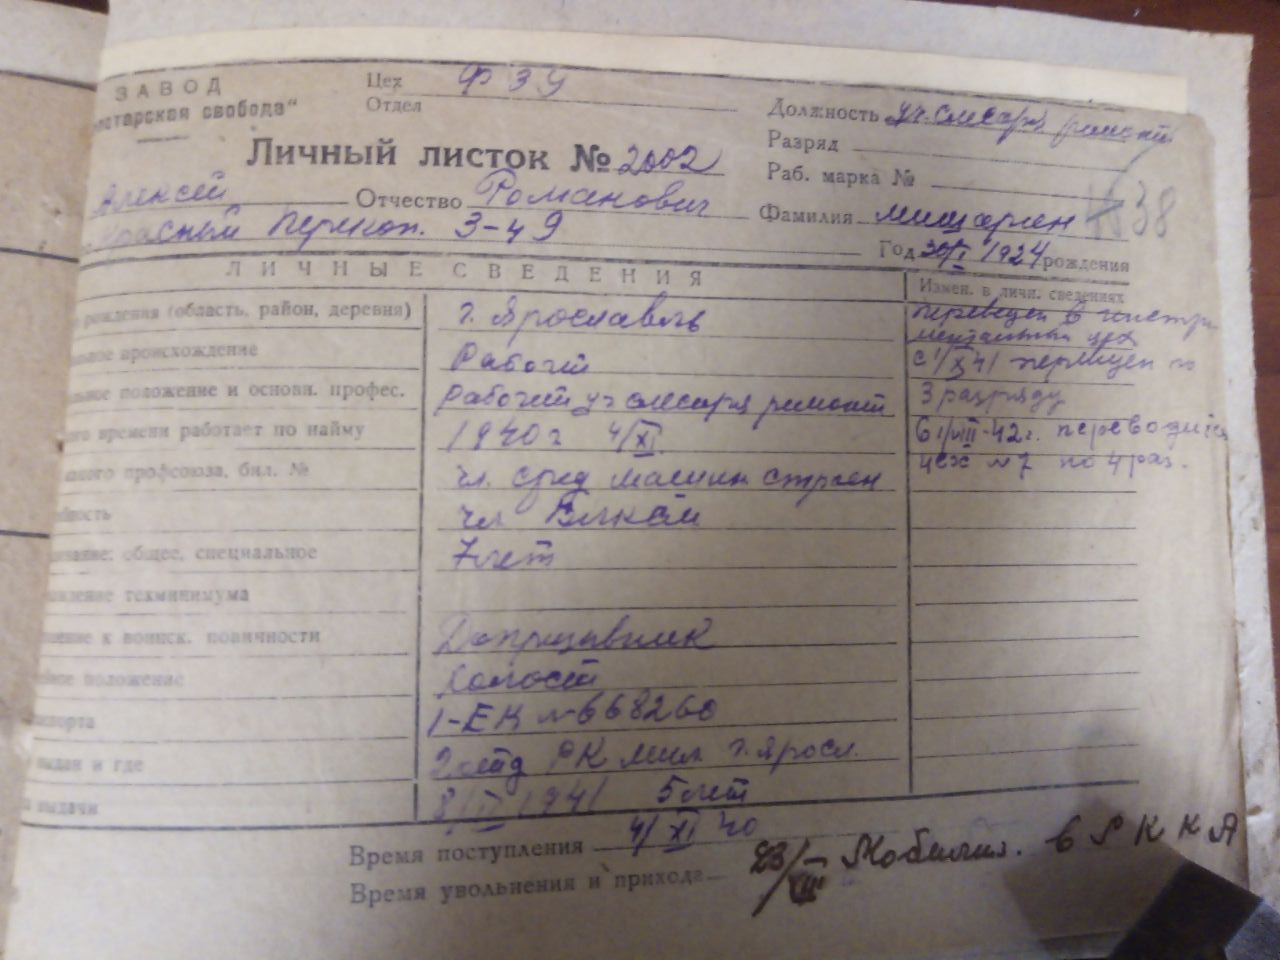 ЗАВОД
Цех ФЗУ
тарская свобода"
Отдел
Должность уч. слесаря ремонт
Личный листок № 2002
Разряд
Раб. марка №
38
Алексей Отчество Романович
Фамилия
Красный Перекоп. 3-49
Год 30/I 1924 рождения
ЛИЧНЫЕ СВЕДЕНИЯ
Измен. в личн. сведениях
рождения (область, район, деревня) г. Ярославль
переведен в инстру
ментальный цех
льное происхождение Рабочий
с 1/X 41 переведен по
льное положение и основн. профес. Рабочий уч слесаря ремонт
3 разряду
го времени работает по найму 1940 г 4/XI
б 1/VIII-42 г. переводится
акого профсоюза, бил. № чл. сред машин строен
цех № 7 по 4 раз.
йность чл ВЛКСМ
ование: общее, специальное 7 лет
ждение техминимума
шение к воинск. повинности Допризывник
йное положение Холост
спорта 1-ЕК № 668260
выдан и где 2 отд РК мил г. Яросл.
выдачи 8/II 1941 5 лет
Время поступления 4/XI 40
Время увольнения и прихода 23/VIII Мобилиз. в РККА